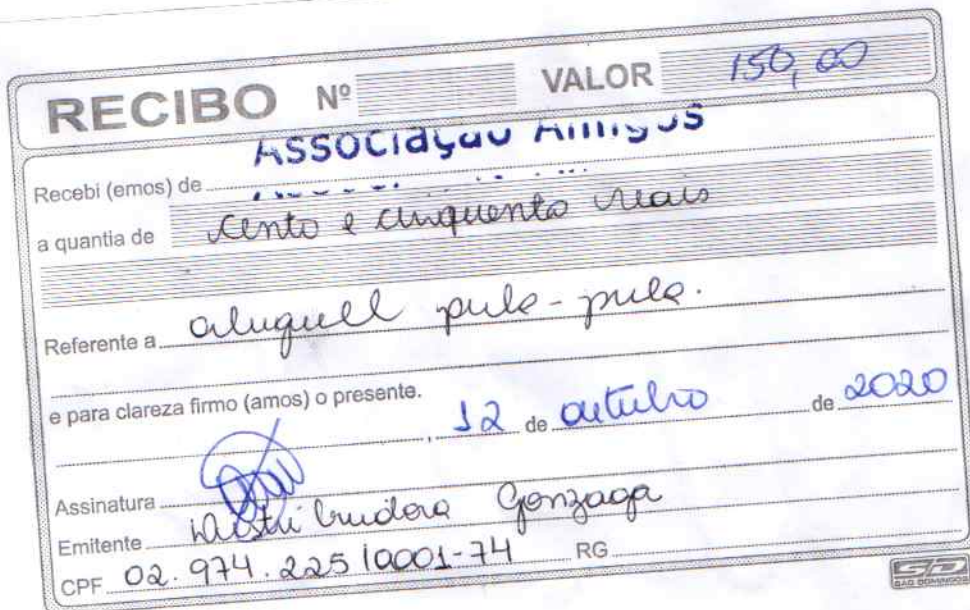 RECIBO Nº VALOR 150,00
Recebi (emos) de Associação Amigos
a quantia de Cento e cinquenta reais
Referente a aluguell pula-pula.
e para clareza firmo (amos) o presente.
, 12 de outubro de 2020
Assinatura
Emitente Distribuidora Gonzaga
CPF 02.974.225/0001-74 RG
SD
SÃO DOMINGOS